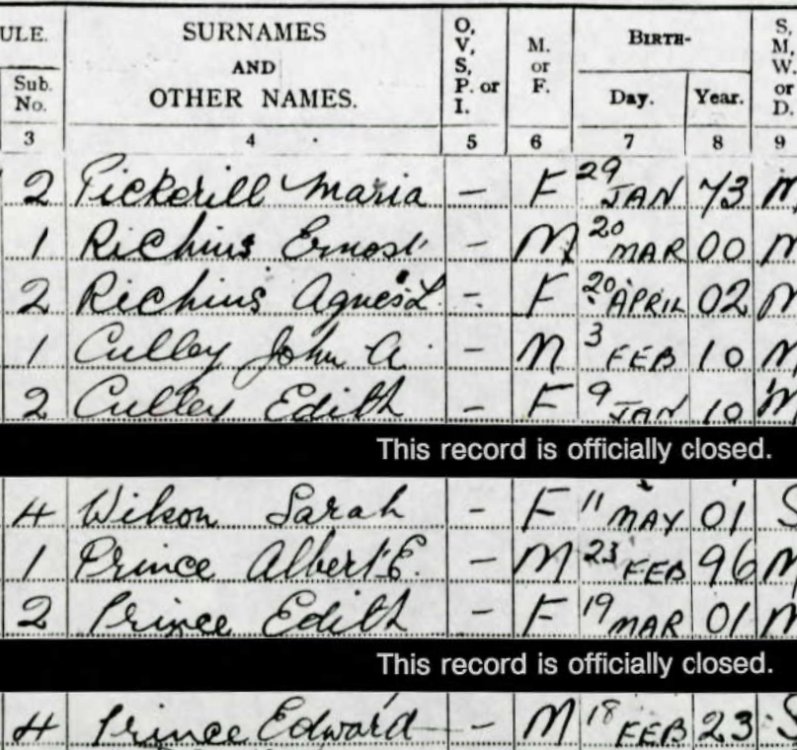 ULE. SURNAMES AND OTHER NAMES. O, V, S, P. or I. M. or F. BIRTH- S, M, W. or D.
Sub. No. Day. Year.
3 4 5 6 7 8 9
2 Pickerill Maria - F 29 JAN 73 M
1 Richins Ernest - M 20 MAR 00 M
2 Richins Agnes L. - F 20 APRIL 02 M
1 Culley John A. - M 3 FEB 10 M
2 Culley Edith - F 9 JAN 10 M
This record is officially closed.
4 Wilson Sarah - F 11 MAY 01 S
1 Prince Albert E. - M 23 FEB 96 M
2 Prince Edith - F 19 MAR 01 M
This record is officially closed.
4 Prince Edward - M 18 FEB 23 S